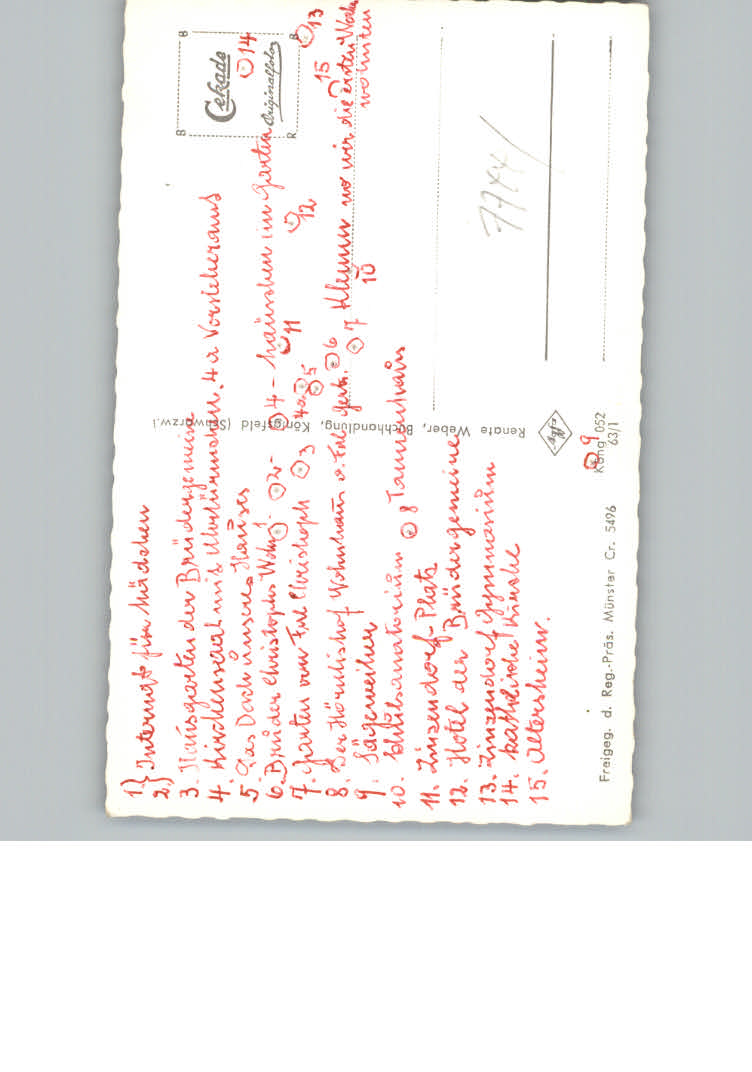 1.} Internat für Mädchen
2.}
3. Hausgarten der Brüdergemeine
4. Kirchensaal mit Uhrtürmchen. 4a Vorsteheraus
5. Das Dach unseres Hauses
6. Bruder Christophs Wohn. 2 - 4 - häuschen im Garten
7. Garten vom Frl Christoph 3 4a 5
8. Der Hörnlishof Wohnhaus v. Frl Gert. 6
9. Sägeweiher 7 Klemm wo wir die ersten Woche
wohnten
10. sanatorium 8 Tannenhaus
11. Zinzendorf-Platz
12. Hotel der Brüdergemeine
13. Zinzendorf Gymnasium
14. katholische Kirche
15. Altersheim.
1
9
10
11
12
13
14
15
B B
B R
Cekade
Originalfoto
Renate Weber, Buchhandlung, Königsfeld (Schwarzw.)
Agfa
König 052
63/1
Freigeg. d. Reg.-Präs. Münster Cr. 5496